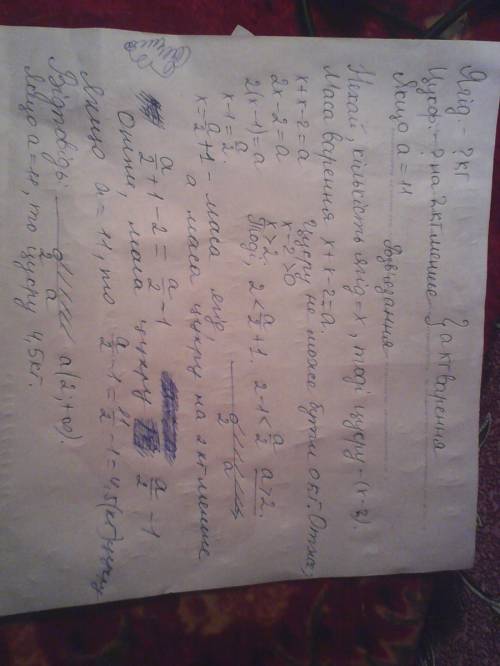 Ягід - ? кг
Цукр. - ? на 2 кг менше } а кг варення
Якщо а = 11
Розв'язання
Нехай, кількість ягід = x, тоді цукру - (x-2).
Маса варення x+x-2=a.
x+x-2=a
2x-2=a
2(x-1)=a
x-1=a/2
x=a/2+1 - маса ягід,
цукру не може бути 0 кг. Отже,
x-2>0
x>2
Тоді, 2<a/2+1. 2-1<a/2 a>2.
2 a
а маса цукру на 2 кг менше
a/2+1-2=a/2-1
Отже, маса цукру a/2-1
Якщо a=11, то a/2-1=11/2-1=4,5(кг)-цукру
Відповідь: 2 a a(2;+∞).
якщо a=11, то цукру 4,5кг.